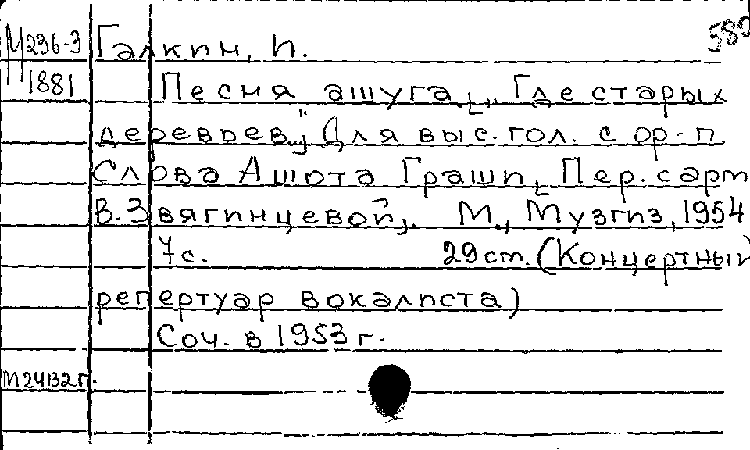 580
М236-3 Галкин, И.
1881 Песня ашуга. [„Где старых
деревьев..."] Для выс. гол. с ор-п
Слова Ашота Граши, [Пер. с арм
В. Звягинцевой]. М., Музгиз, 1954
7с. 29 cm. (Концертный
репертуар вокалиста)
Соч. в 1953 г.